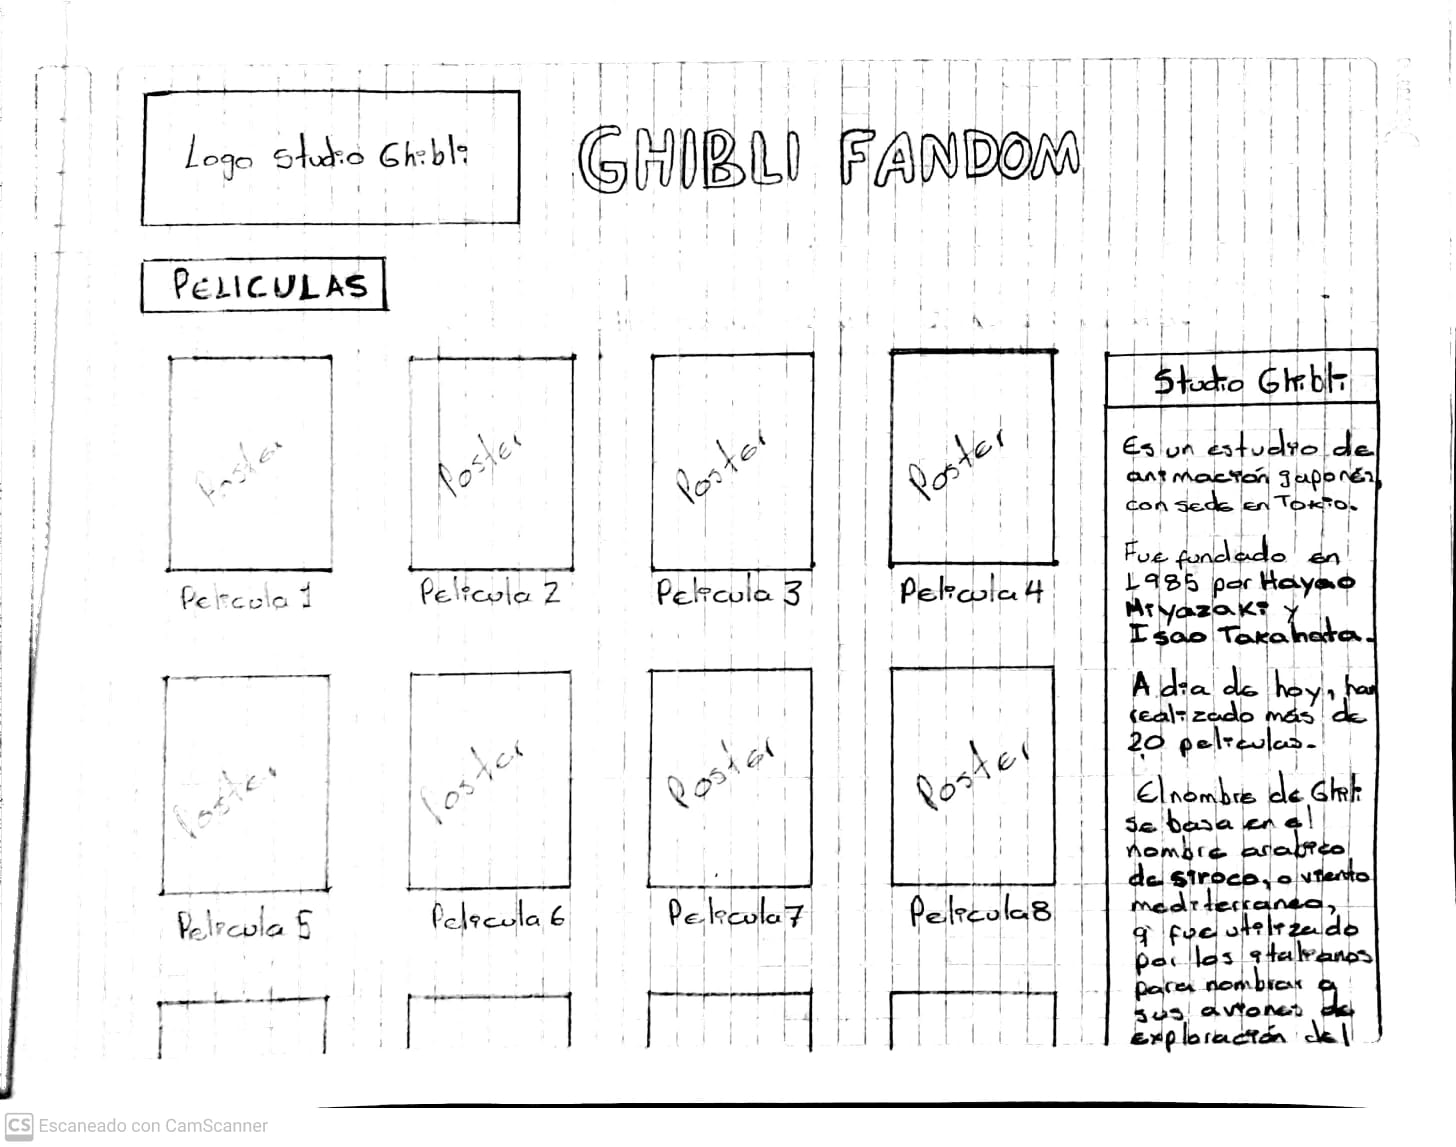 Logo Studio Ghibli
GHIBLI FANDOM
PELICULAS
Poster
Poster
Poster
Poster
Pelicula 1
Pelicula 2
Pelicula 3
Pelicula 4
Poster
Poster
Poster
Poster
Pelicula 5
Pelicula 6
Pelicula 7
Pelicula 8
Studio Ghibli
Es un estudio de
animación japonés,
con sede en Tokio.
Fue fundado en
1985 por Hayao
Miyazaki y
Isao Takahata.
A dia de hoy, han
realizado más de
20 peliculas.
El nombre de Ghibli
se basa en el
nombre arabico
de siroco, o viento
mediterraneo,
q fue utilizado
por los italianos
para nombrar a
sus aviones de
exploración del
CS Escaneado con CamScanner